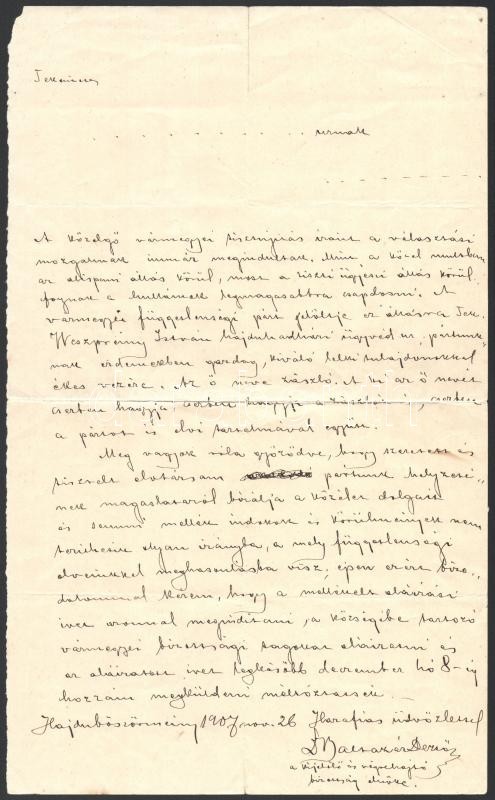 Tekintetes
. . . . . . . . . . . urnak
. . . . . . . . .
A közelgő vármegyei tisztujitás iránt a választási
mozgalmak immár megindultak. Mint a közel multban
az alispáni állás körül, most a tiszti ügyészi állás körül
fognak a hullámok legmagasabbra csapdosni. A
vármegyei függetlenségi párt jelöltje ez állásra Tek.
Weszprémy István hajduhadházi ügyvéd ur, pártunk-
nak érdemekben gazdag, kiváló lelki tulajdonokkal
ékes vezére. Az ő neve zászló. A ki az ő nevét
cserben hagyja, cserben hagyja a zászlót is, cserben
a pártot is elvi tartalmával együtt.
Meg vagyok róla győződve, hogy szeretett és
tisztelt elvtársam pártunk helyzeté-
nek magaslatáról birálja a közélet dolgait
és semmi mellék indokok és körülmények nem
terithetik olyan irányba, a mely függetlenségi
elveinkkel meghasonlásba visz, épen ezért biza-
dalommal kérem, hogy a mellékelt aláirási
ivet azonnal megindítani, a községibe tartozó
vármegyei bizottsági tagokat aláiratni és
az aláiratott ivet legkésőbb december hó 8-ig
hozzám megküldeni méltóztassék.
Hajduböszörmény 1907 nov. 26 Hazafias üdvözlettel
Dr Baltazár Dezső
a kijelölő és végrehajtó
bizottság elnöke.